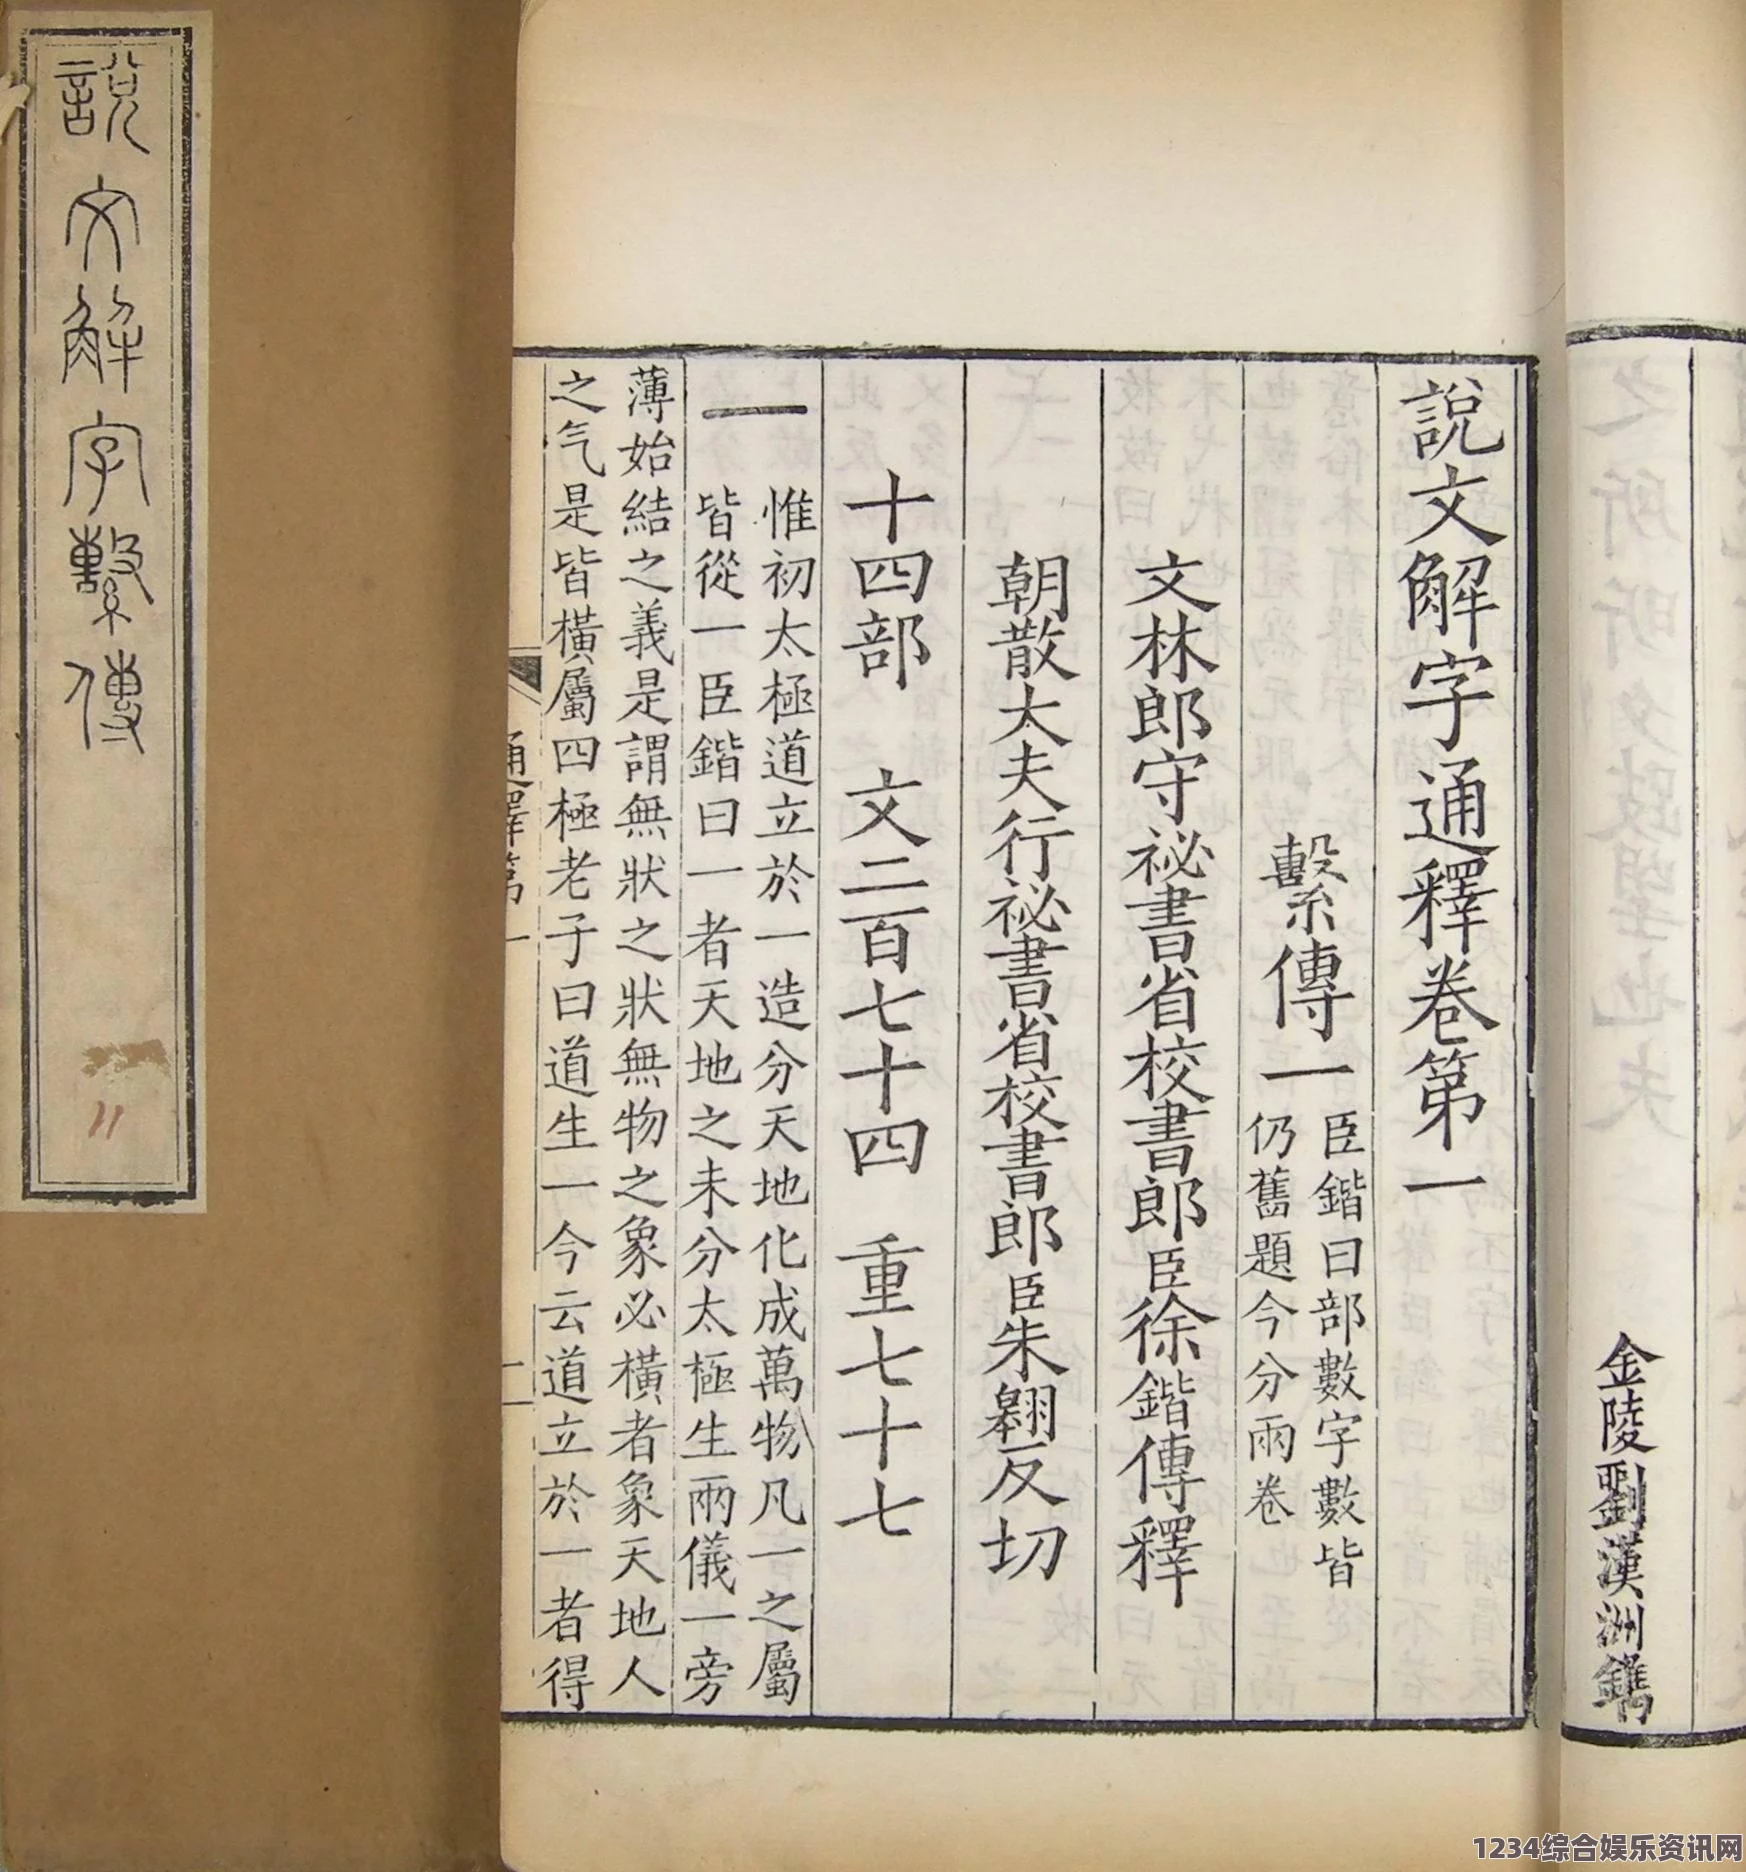 說文解字繫傳
11
金陵劉漢洲鐫
說文解字通釋卷第一
繫傳一
臣鍇曰部數字數皆
仍舊題今分兩卷
文林郎守祕書省校書郎臣徐鍇傳釋
朝散大夫行祕書省校書郎臣朱翱反切
十四部 文二百七十四 重七十七
一
惟初太極道立於一造分天地化成萬物凡一之屬
皆從一臣鍇曰一者天地之未分太極生兩儀一旁
薄始結之義是謂無狀之狀無物之象必橫者象天地人
之气是皆橫屬四極老子曰道生一今云道立於一者得
通釋第一
二
1234综合娱乐资讯网